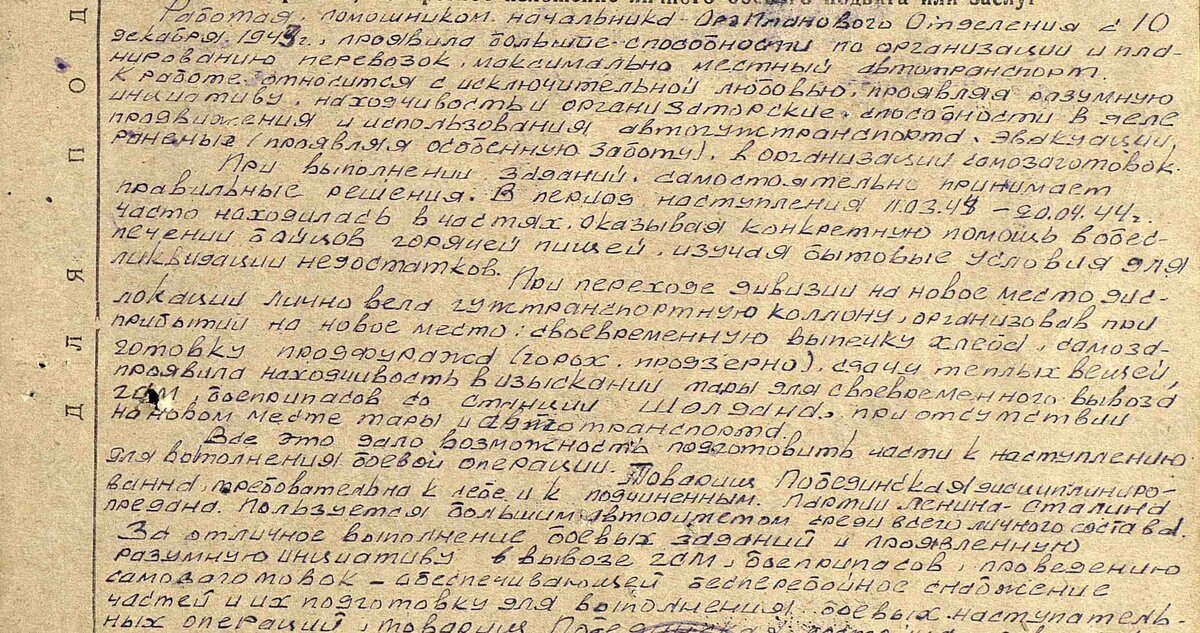 изложение личного боевого подвига или заслуг
Работая помошником начальника Оргпланового Отделения с 10
декабря 1943г., проявила больше способности по организации и пла-
нированию перевозок, максимально местный автотранспорт.
К работе относится с исключительной любовью, проявляя разумную
инициативу, находчивость и организаторские способности в деле
продвижения и использования автогужтранспорта, эвакуации,
раненых (проявляя особенную заботу), в организации самозаготовок.
При выполнении заданий, самостоятельно принимает
правильные решения. В период наступления 11.03.44 – 20.04.44г.
часто находилась в частях, оказывая конкретную помощь в обес-
печении бойцов горячей пищей, изучая бытовые условия для
ликвидации недостатков.
При переходе дивизии на новое место дис-
локации лично вела гужтранспортную коллону, организовав при
прибытии на новое место: своевременную выпечку хлеба, самоза-
готовку продфуража (горох, продзерно), сдачу теплых вещей,
проявила находчивость в изыскании тары для своевременного вывоза
ГСМ, боеприпасов со станции Шолдана, при отсутствии
на новом месте тары и автотранспорта.
Все это дало возможность подготовить части к наступлению
для вотолнения боевой операции. Товарищ Побединская дисциплиниро-
ванна, требовательна к себе и к подчиненным. Партии Ленина-Сталина
предана. Пользуется большим авторитетом среди всего личного состава.
За отличное выполнение боевых заданий и проявленную
разумную инициативу в вывозе ГСМ, боеприпасов, проведению
самозаготовок – обеспечивающей бесперебойное снабжение
частей и их подготовку для выполнения боевых наступатель-
ных операций, товарищ Побединская
Д Л Я П О Д